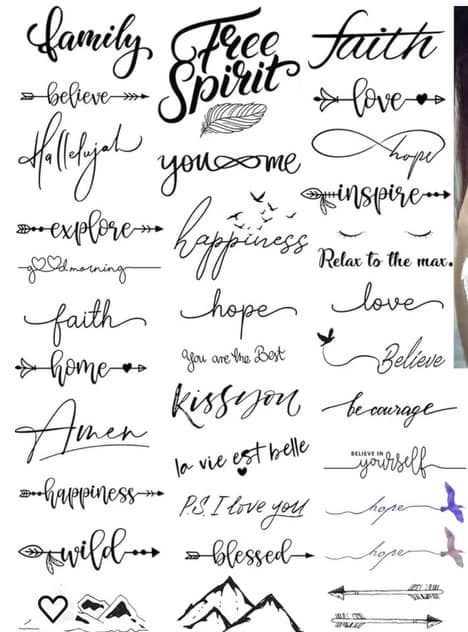 family
believe
Hallelujah
explore
good morning
faith
home
Amen
happiness
wild
Free
Spirit
you me
happiness
hope
You are the Best
kiss you
la vie est belle
P.S. I love you
blessed
faith
love
hope
inspire
Relax to the max.
love
Believe
be courage
BELIEVE IN
yourself
hope
hope